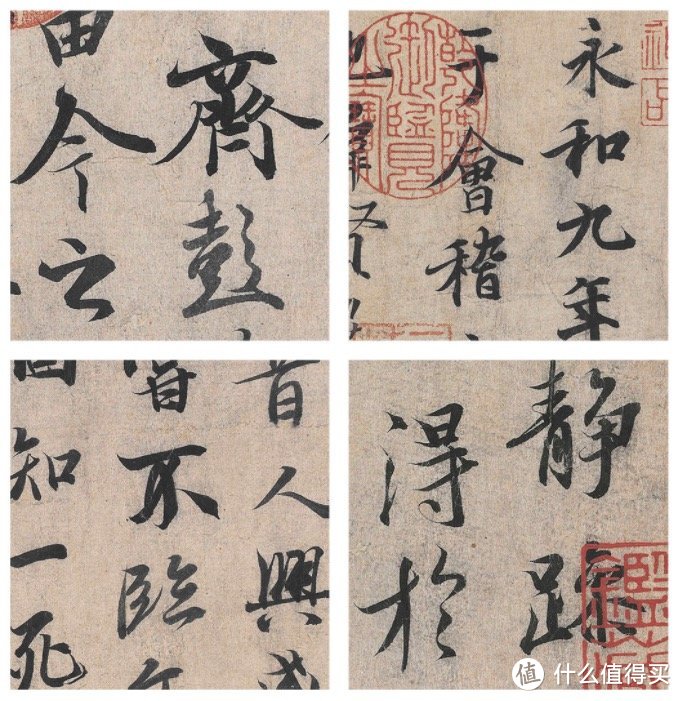 齊彭
由今之
永和九年
于會稽
也羣賢
昔人興感
嘗不臨文
固知一死
靜躁
得於
值 什么值得买